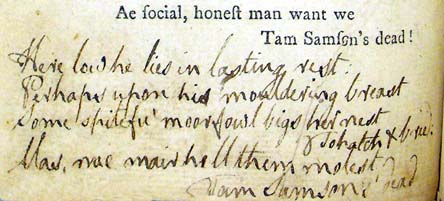 Ae ſocial, honeſt man want we
Tam Samſon's dead!
Here low he lies in lasting rest:
Perhaps upon his mouldering breast
Some spitefu' moorfowl bigs her nest
To hatch & breed:
Alas, nae mair he'll them molest
Tam Samson's dead